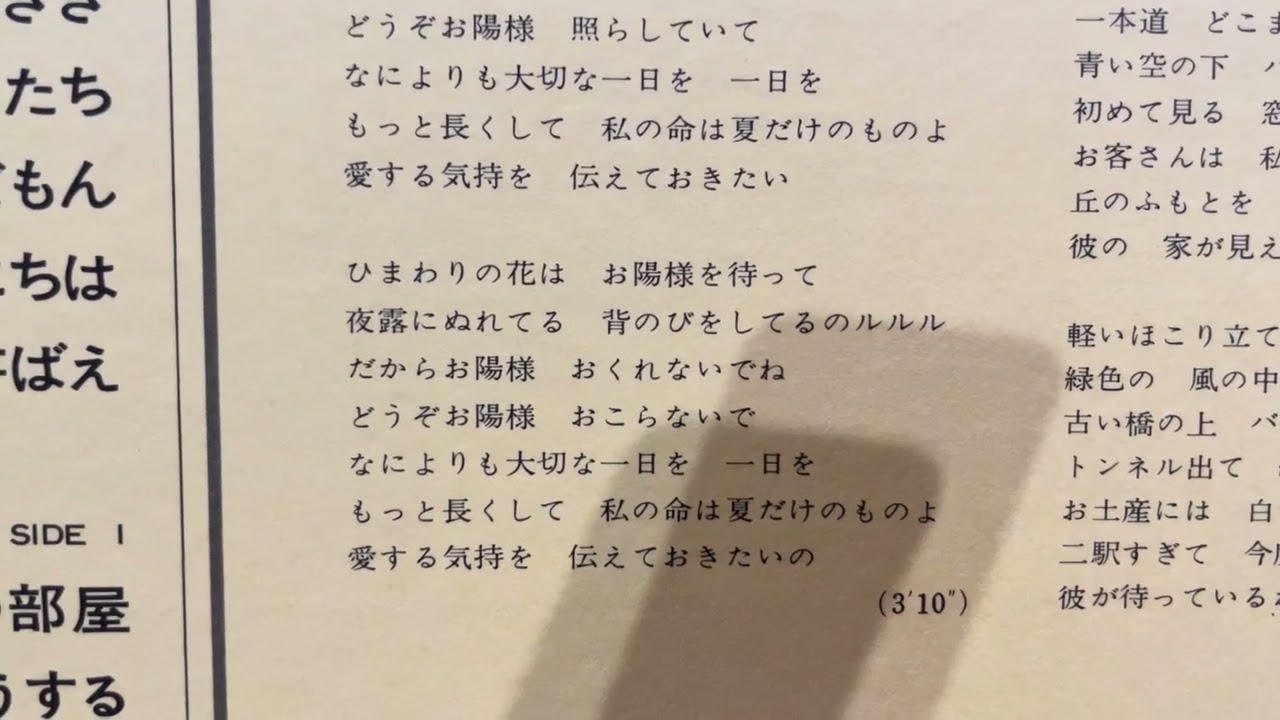 たち
もん
ちは
ばえ
SIDE 1
部屋
する
どうぞお陽様　照らしていて
なによりも大切な一日を　一日を
もっと長くして　私の命は夏だけのものよ
愛する気持を　伝えておきたい
ひまわりの花は　お陽様を待って
夜露にぬれてる　背のびをしてるのルルル
だからお陽様　おくれないでね
どうぞお陽様　おこらないで
なによりも大切な一日を　一日を
もっと長くして　私の命は夏だけのものよ
愛する気持を　伝えておきたいの
(3′10″)
一本道　どこま
青い空の下
初めて見る　窓
お客さんは　私
丘のふもとを
彼の　家が見え
軽いほこり立て
緑色の　風の中
古い橋の上　バ
トンネル出て
お土産には　白
二駅すぎて　今
彼が待っている